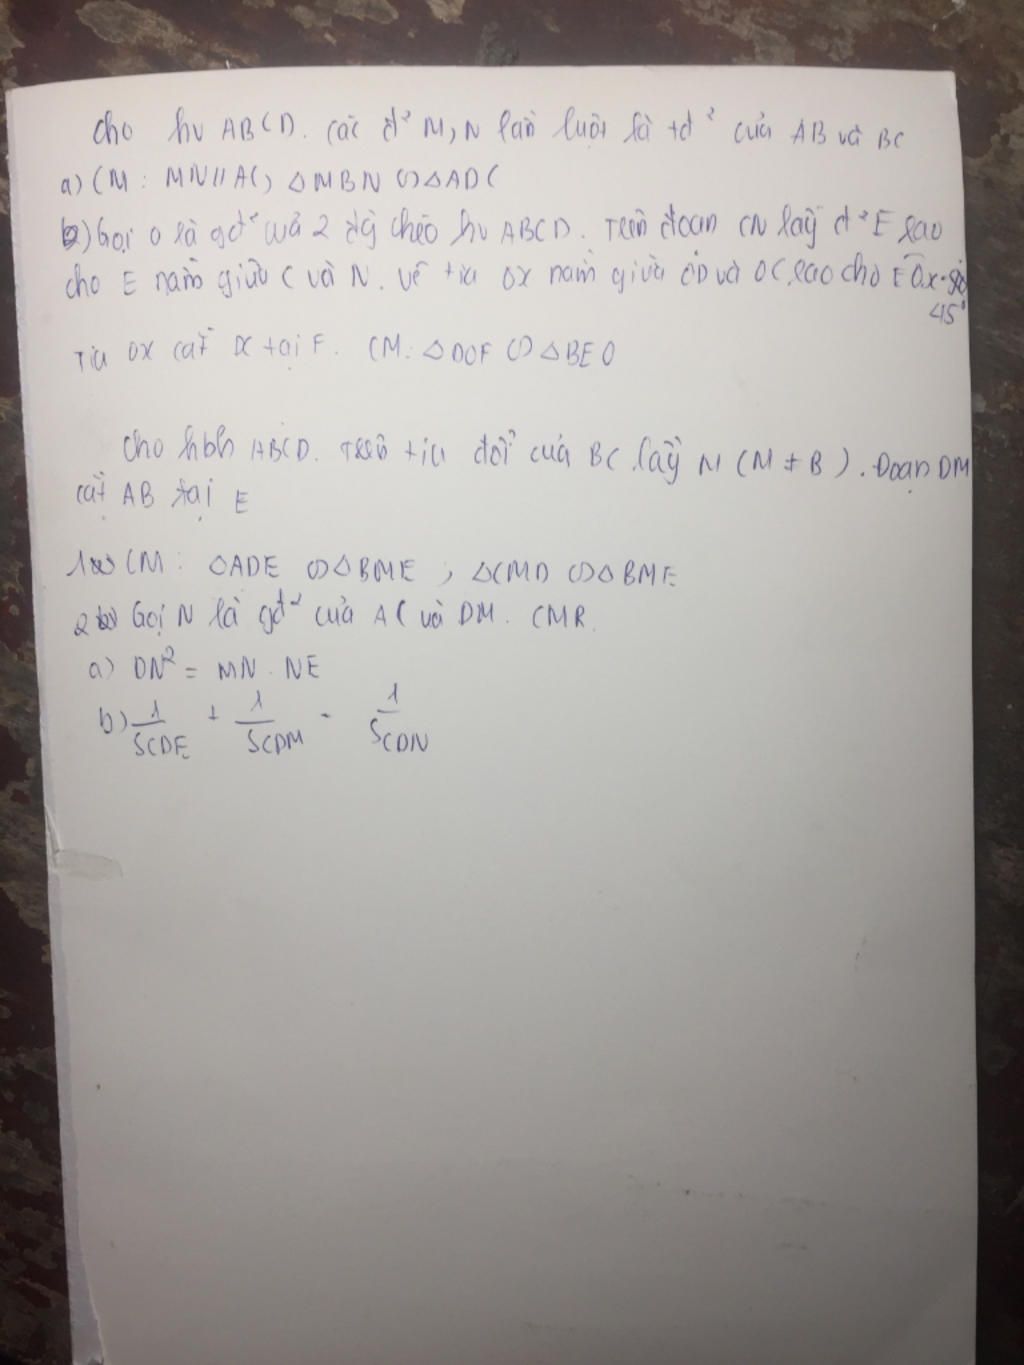 Cho hv ABCD. Các đ² M, N lần lượt là tđ² của AB và BC
a) CM : MN // AC, △MBN ∽ △ADC
b) Gọi O là gđ² của 2 đg chéo hv ABCD. Trên đoạn CN lấy đ² E sao
cho E nằm giữa C và N. Vẽ tia Ox nằm giữa OD và OC sao cho EÔx =
45°
Tia Ox cắt DC tại F. CM. △DOF ∽ △BEO
Cho hbh ABCD. Trên tia đối của BC lấy M (M ≠ B). Đoạn DM
cắt AB tại E
1 CM : △ADE ∽ △BME , △CMD ∽ △BME
2 Gọi N là gđ² của AC và DM. CMR.
a) DN² = MN . NE
b) 1/SCDE + 1/SCDM = 1/SCDN